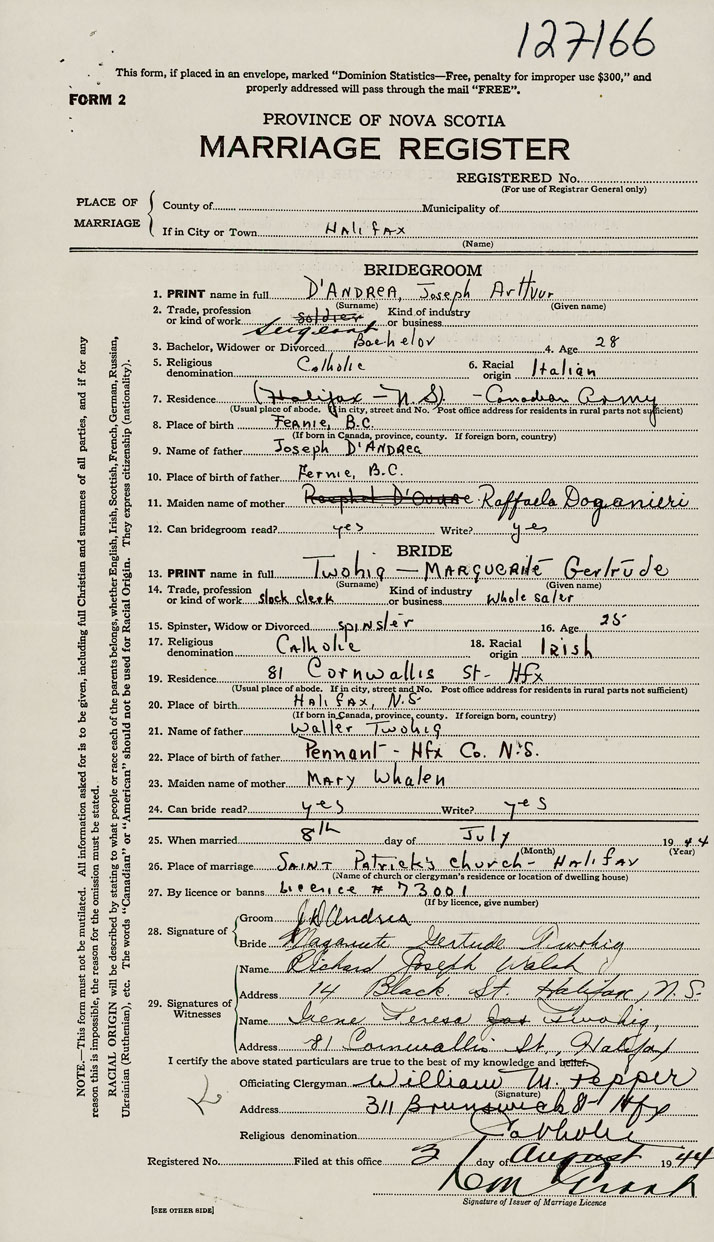 127166
This form, if placed in an envelope, marked "Dominion Statistics—Free, penalty for improper use $300," and
properly addressed will pass through the mail "FREE".
FORM 2
PROVINCE OF NOVA SCOTIA
MARRIAGE REGISTER
REGISTERED No.
(For use of Registrar General only)
PLACE OF MARRIAGE
County of Municipality of
If in City or Town Halifax
(Name)
BRIDEGROOM
1. PRINT name in full D'ANDREA, Joseph Arthur
(Surname) (Given name)
2. Trade, profession or kind of work Soldier Sergeant Kind of industry or business
3. Bachelor, Widower or Divorced Bachelor 4. Age 28
5. Religious denomination Catholic 6. Racial origin Italian
7. Residence (Halifax - N.S) - Canadian Army
(Usual place of abode. If in city, street and No. Post office address for residents in rural parts not sufficient)
8. Place of birth Fernie, B.C.
(If born in Canada, province, county. If foreign born, country)
9. Name of father Joseph D'ANDREA
10. Place of birth of father Fernie, B.C.
11. Maiden name of mother Raffaela Doganieri
12. Can bridegroom read? yes Write? yes
BRIDE
13. PRINT name in full Twohig - MARGUERITE Gertrude
(Surname) (Given name)
14. Trade, profession or kind of work stock clerk Kind of industry or business whole saler
15. Spinster, Widow or Divorced spinster 16. Age 25
17. Religious denomination Catholic 18. Racial origin IRISH
19. Residence 81 Cornwallis St- Hfx
(Usual place of abode. If in city, street and No. Post office address for residents in rural parts not sufficient)
20. Place of birth Halifax, N.S.
(If born in Canada, province, county. If foreign born, country)
21. Name of father Walter Twohig
22. Place of birth of father Pennant - Hfx Co. N.S.
23. Maiden name of mother MARY Whalen
24. Can bride read? yes Write? yes
25. When married 8th day of July 1944
(Month) (Year)
26. Place of marriage SAINT Patrick's church - Halifax
(Name of church or clergyman's residence or location of dwelling house)
27. By licence or banns Licence # 73001
(If by licence, give number)
28. Signature of
Groom J D'Andrea
Bride Gertrude Twohig
29. Signatures of Witnesses
Name Richard Joseph Walsh
Address 14 Black St. Halifax, N.S.
Name Irene Teresa Twohig,
Address 81 Cornwallis St., Halifax
I certify the above stated particulars are true to the best of my knowledge and belief.
Officiating Clergyman William M. Pepper
(Signature)
Address 311 Brunswick St Hfx
Religious denomination Catholic
Registered No. Filed at this office 3 day of August 1944
Signature of Issuer of Marriage Licence
[SEE OTHER SIDE]
NOTE.—This form must not be mutilated. All information asked for is to be given, including full Christian and surnames of all parties, and if for any
reason this is impossible, the reason for the omission must be stated.
RACIAL ORIGIN will be described by stating to what people or race each of the parents belongs, whether English, Irish, Scottish, French, German, Russian,
Ukrainian (Ruthenian), etc. The words "Canadian" or "American" should not be used for Racial Origin. They express citizenship (nationality).